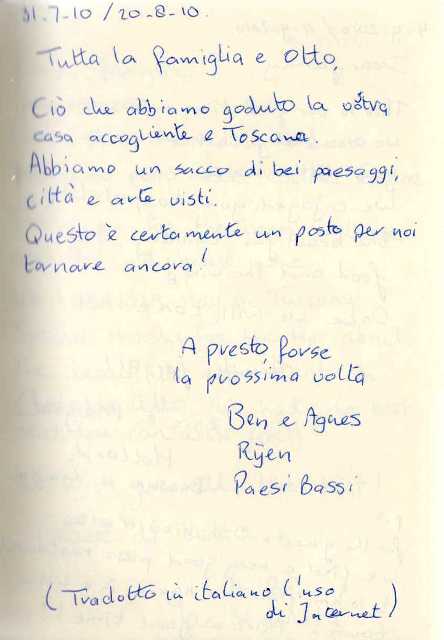 31.7-10 / 20-8-10.
Tutta la famiglia e Otto,
Ciò che abbiamo goduto la vostra
casa accogliente e Toscana.
Abbiamo un sacco di bei paesaggi,
città e arte visti.
Questo è certamente un posto per noi
tornare ancora!
A presto, forse
la prossima volta
Ben e Agnes
Rijen
Paesi Bassi
(Tradotto in italiano l'uso
di Internet)